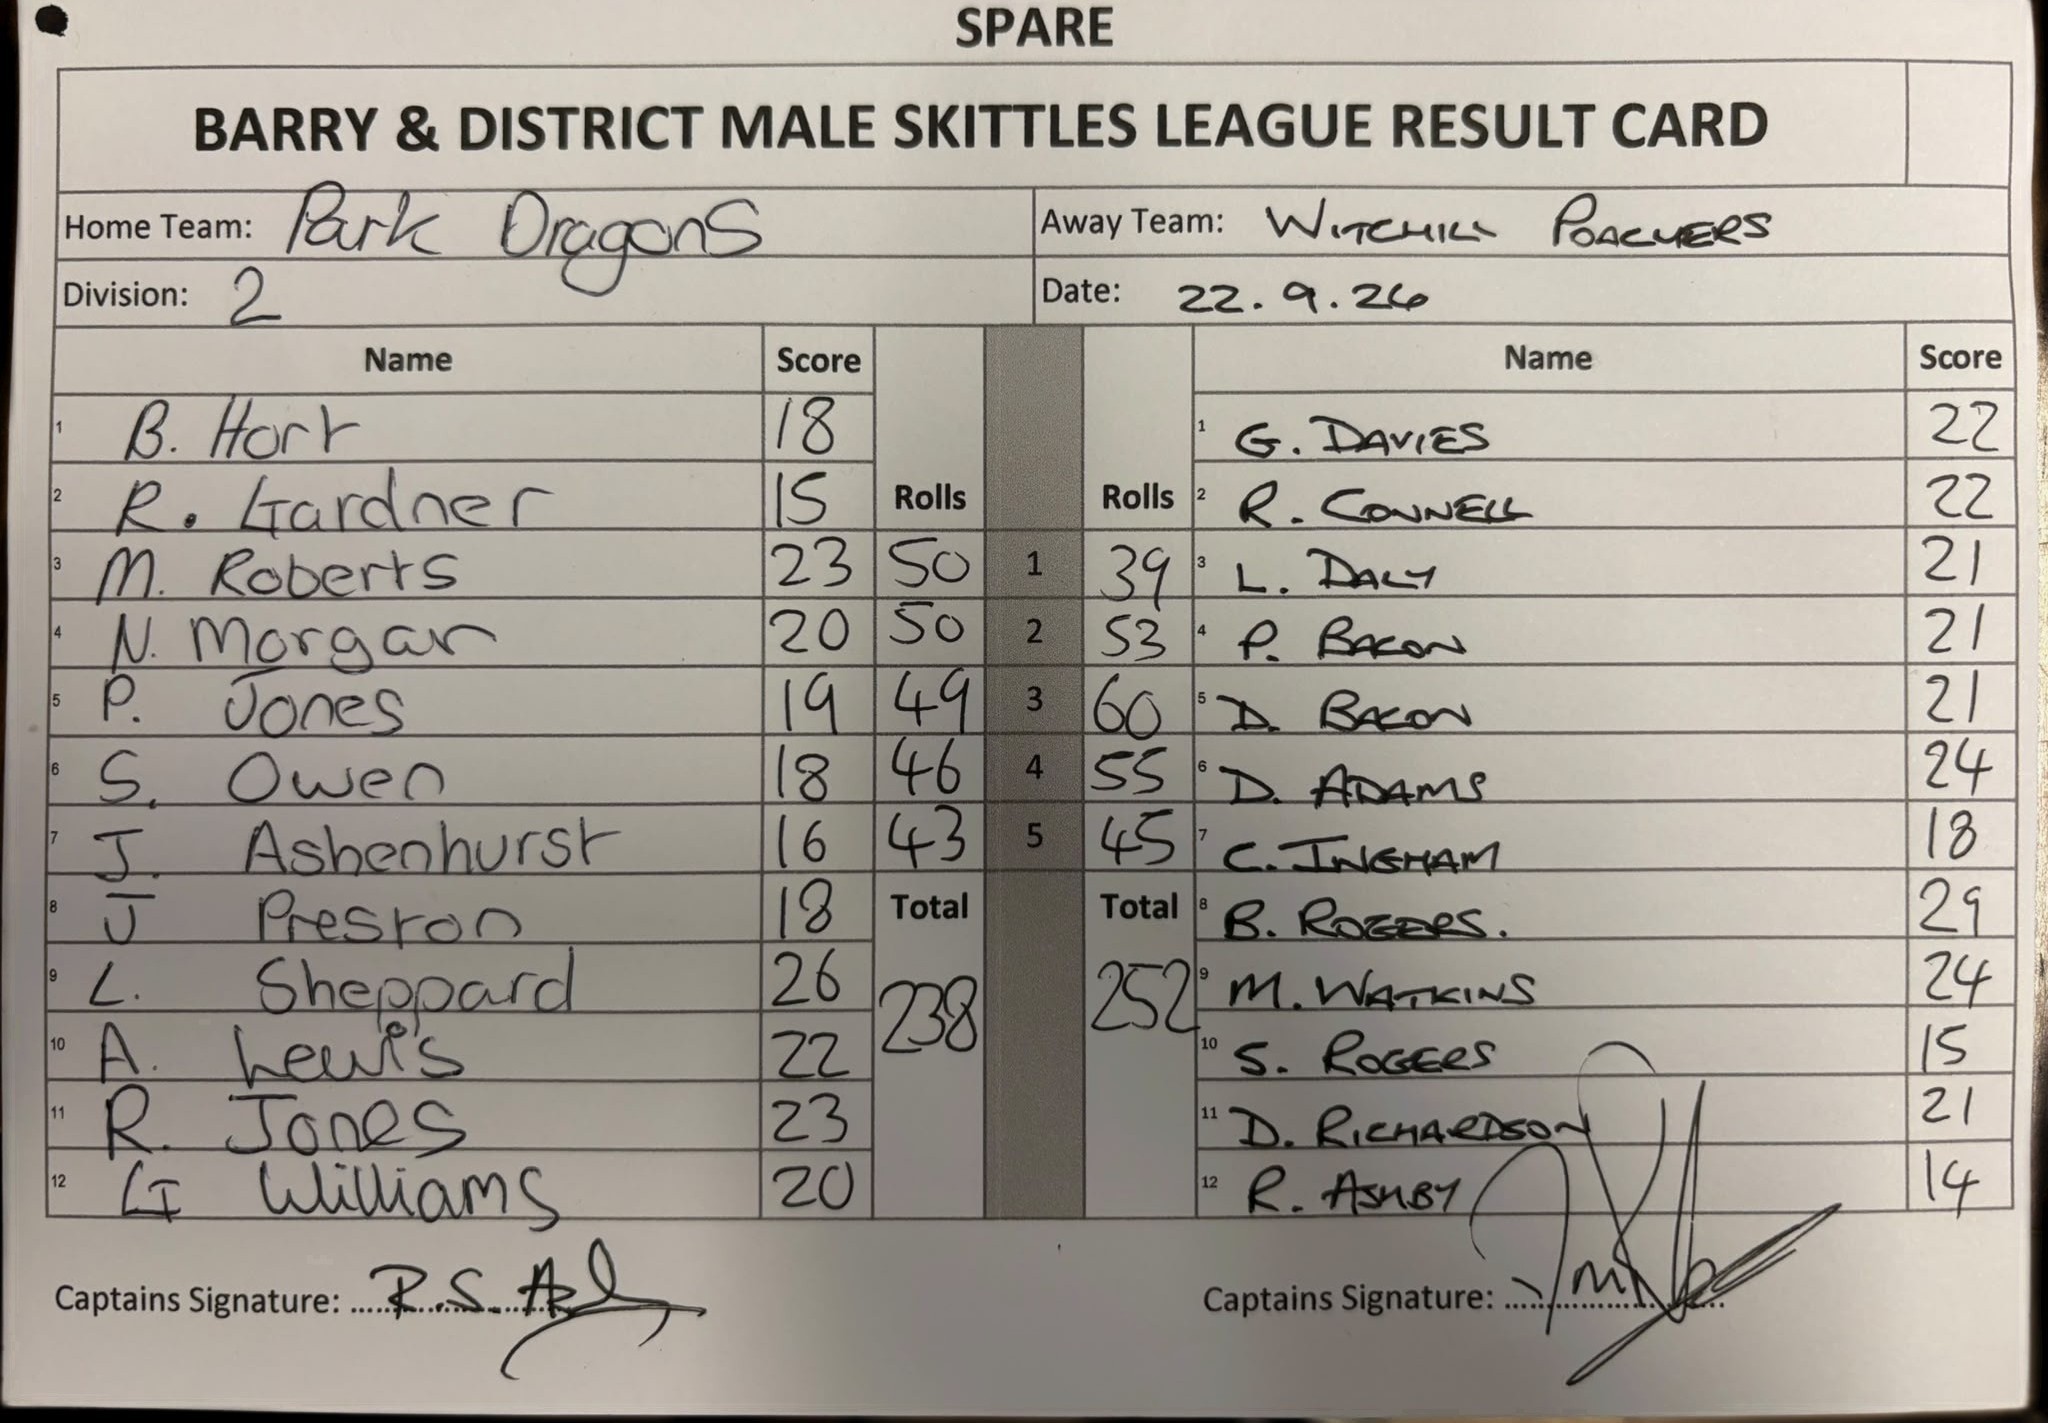 SPARE
BARRY & DISTRICT MALE SKITTLES LEAGUE RESULT CARD
Home Team: Park Dragons Away Team: WITCHILL POACHERS
Division: 2 Date: 22.9.26
Name Score Name Score
1 B. Hort 18 1 G. DAVIES 22
2 R. Gardner 15 Rolls Rolls 2 R. CONNELL 22
3 M. Roberts 23 50 1 39 3 L. DALY 21
4 N. Morgan 20 50 2 53 4 P. BACON 21
5 P. Jones 19 49 3 60 5 D. BACON 21
6 S. Owen 18 46 4 55 6 D. ADAMS 24
7 J. Ashenhurst 16 43 5 45 7 C. INGHAM 18
8 J Preston 18 Total Total 8 B. ROGERS. 29
9 L. Sheppard 26 238 252 9 M. WATKINS 24
10 A. Lewis 22 10 S. ROGERS 15
11 R. Jones 23 11 D. RICHARDSON 21
12 G Williams 20 12 R. ASHBY 14
Captains Signature: R.S. Captains Signature: